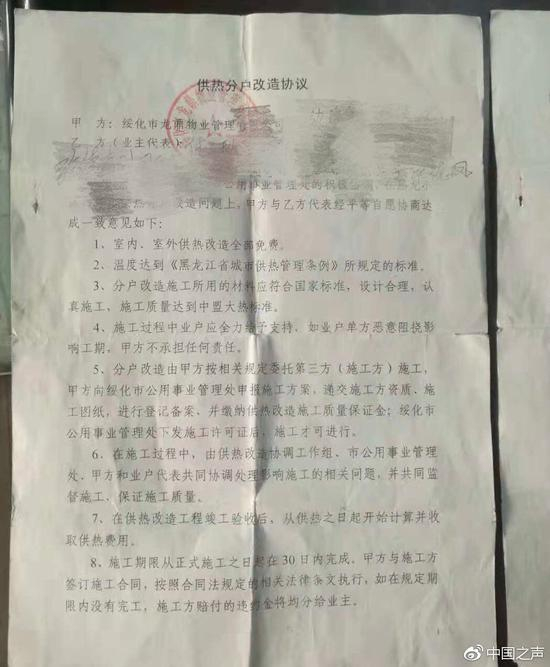 供热分户改造协议
甲 方：绥化市龙鼎物业管理
乙 方（业主代表）
公用事业管理处的积极
改造问题上，甲方与乙方代表经平等自愿协商达
成一致意见如下：
1、室内、室外供热改造全部免费。
2、温度达到《黑龙江省城市供热管理条例》所规定的标准。
3、分户改造施工所用的材料应符合国家标准，设计合理，认
真施工，施工质量达到中盟大热标准。
4、施工过程中业户应全力给予支持，如业户单方恶意阻挠影
响工期，甲方不承担任何责任。
5、分户改造由甲方按相关规定委托第三方（施工方）施工，
甲方向绥化市公用事业管理处申报施工方案，递交施工方资质、施
工图纸，进行登记备案、并缴纳供热改造施工质量保证金；绥化市
公用事业管理处下发施工许可证后，施工才可进行。
6、在施工过程中，由供热改造协调工作组、市公用事业管理
处、甲方和业户代表共同协调处理影响施工的相关问题，并共同监
督施工、保证施工质量。
7、在供热改造工程竣工验收后，从供热之日起开始计算并收
取供热费用。
8、施工期限从正式施工之日起在30日内完成。甲方与施工方
签订施工合同，按照合同法规定的相关法律条文执行，如在规定期
限内没有完工，施工方赔付的违约金将均分给业主。
中国之声